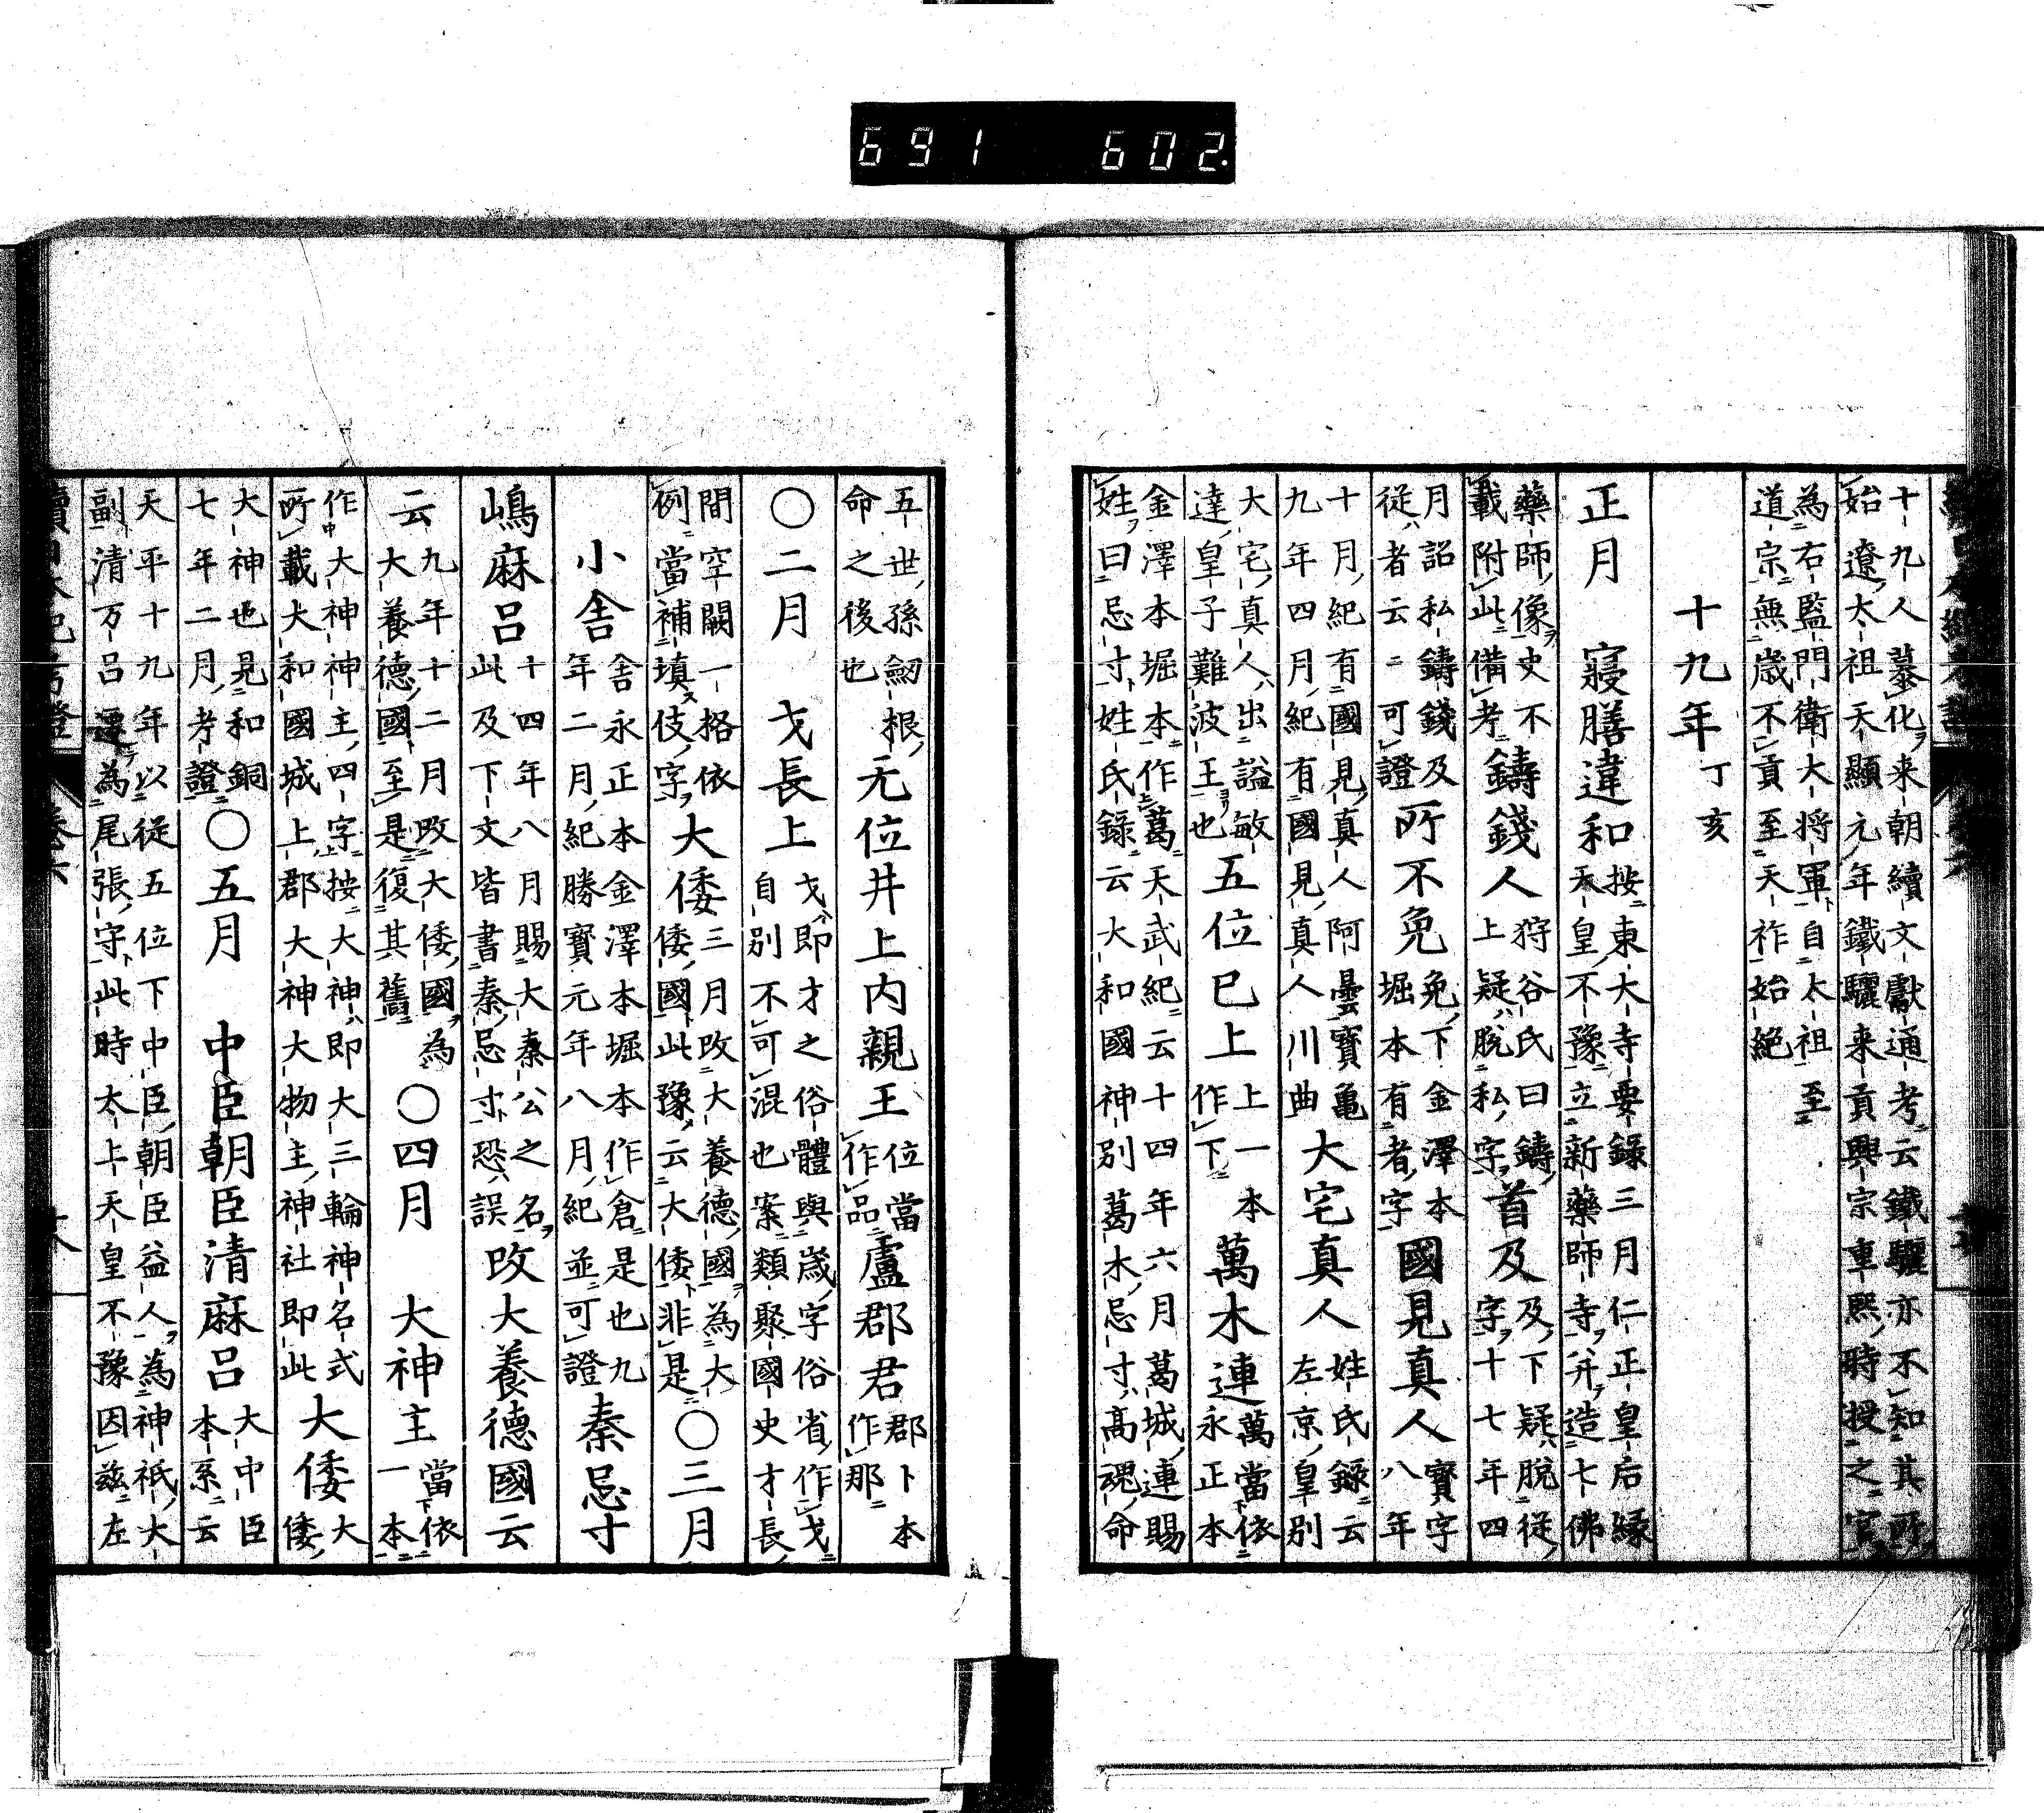 691 602.
十九人慕化来朝續文獻通考云鐵驪亦不知其所
始遼太祖天顯元年鐵驪来貢興宗重熙時授之官
為右監門衛大將軍自太祖至
道宗無歳不貢至天祚始絶
十九年丁亥
正月 寢膳違和按東大寺要録三月仁正皇后縁
天皇不豫立新藥師寺并造七佛
藥師像史不
載附此備考鑄錢人狩谷氏曰鑄
上疑脱私字首及及下疑脱從
字十七年四
月詔私鑄錢及
從者云二可證所不免免下金澤本
堀本有者字國見真人寳字
八年
十月紀有國見真人阿曇寳亀
九年四月紀有國見真人川曲大宅真人姓氏録云
左京皇別
大宅真人出謚敏
達皇子難波王也五位巳上上一本
作下萬木連萬當依
永正本
金澤本堀本作葛天武紀云十四年六月葛城連賜
姓曰忌寸姓氏録云大和國神別葛木忌寸高魂命
五世孫劔根
命之後也无位井上内親王位當
作品盧郡君郡卜本
作那
〇二月 戈長上戈即才之俗體與歳字俗省作戈
自別不可混也案類聚國史才長
間空闕一格依
例當補填伎字大倭三月改大養德國為大
倭國此豫云大倭非是〇三月
小舎舎永正本金澤本堀本作倉是也九
年二月紀勝寳元年八月紀並可證秦忌寸
嶋麻呂十四年八月賜大秦公之名
此及下文皆書秦忌寸恐誤改大養德國云
云九年十二月改大倭國為
大養德國至是復其舊〇四月 大神主當依
一本
作大神神主四字按大神即大三輪神名式
所載大和國城上郡大神大物主神社即此大倭大
倭
大神也見和銅
七年二月考證〇五月 中臣朝臣清麻呂大中臣
本系云
天平十九年以從五位下中臣朝臣益人為神祇大
副清万呂遷為尾張守此時太上天皇不豫因茲左